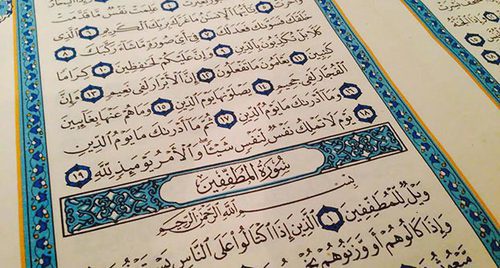 عَلِمَتْ نَفْسٌ مَّا قَدَّمَتْ
يَٰٓأَيُّهَا ٱلْإِنسَٰنُ مَا غَرَّكَ بِرَبِّكَ ٱلْكَرِيمِ ٦ ٱلَّذِى
خَلَقَكَ فَسَوَّىٰكَ فَعَدَلَكَ ٧ فِىٓ أَىِّ صُورَةٍ مَّا شَآءَ رَكَّبَكَ ٨
كَلَّا بَلْ تُكَذِّبُونَ بِٱلدِّينِ ٩ وَإِنَّ عَلَيْكُمْ لَحَٰفِظِينَ ١٠ كِرَامًا
كَٰتِبِينَ ١١ يَعْلَمُونَ مَا تَفْعَلُونَ ١٢ إِنَّ ٱلْأَبْرَارَ لَفِى نَعِيمٍ ١٣ وَإِنَّ
ٱلْفُجَّارَ لَفِى جَحِيمٍ ١٤ يَصْلَوْنَهَا يَوْمَ ٱلدِّينِ ١٥ وَمَا هُمْ عَنْهَا بِغَآئِبِينَ
١٦ وَمَآ أَدْرَىٰكَ مَا يَوْمُ ٱلدِّينِ ١٧ ثُمَّ مَآ أَدْرَىٰكَ مَا يَوْمُ ٱلدِّينِ
١٨ يَوْمَ لَا تَمْلِكُ نَفْسٌ لِّنَفْسٍ شَيْـًٔا وَٱلْأَمْرُ يَوْمَئِذٍ لِّلَّهِ ١٩
سُورَةُ المُطَفِّفِينَ
بِسْمِ ٱللَّهِ ٱلرَّحْمَٰنِ ٱلرَّحِيمِ
وَيْلٌ لِّلْمُطَفِّفِينَ ١ ٱلَّذِينَ إِذَا ٱكْتَالُوا۟ عَلَى ٱلنَّاسِ
وَإِذَا كَالُوهُمْ أَو وَّزَنُوهُمْ